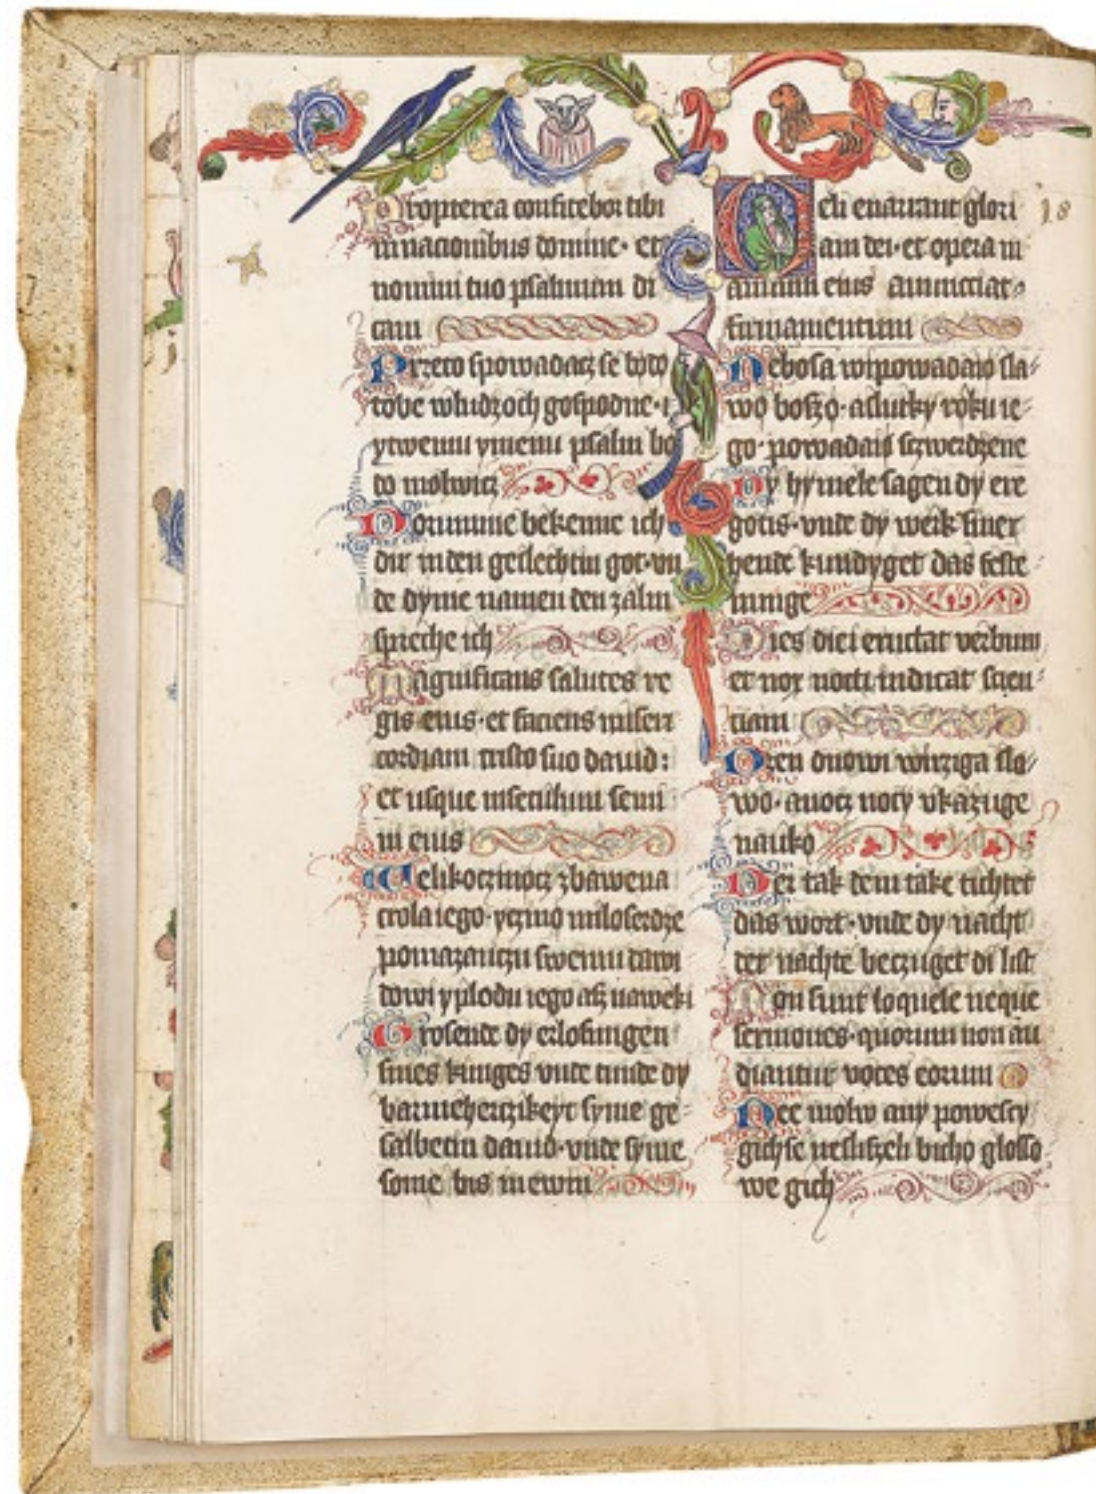 Propterea confitebor tibi
in nacionibus domine· et
nomini tuo psalmum di
cam
Przeto spowadacz se bodo
tobe wludzoch gospodne· i
ytwemu ymenu psalm bo
do molwicz
Dorumme bekenne ich
dir in den geslechtin got· vn
de dyme namen den zalm
spreche ich
Magnificans salutes re
gis eius· et faciens miseri
cordiam cristo suo dauid:
et usque in seculum semi
ni eius
Welikoczinocz zbawena
crola iego· yczino miloserdze
pomazanczu swemu dawi
dowi yplodu iego asz naweki
Grosende dy erlosungen
sines kuniges vnde tunde dy
barmeherczikeyt syme ge-
salbetin dauid· vnde syme
some bis in ewin
Celi enarrant glori 18
am dei· et opera m
anuum eius annuctiat
firmamentum
Nebosa wipowadaio sla-
wo boszo· a slutky roku ie-
go· powadaio sczwerdzene
Dy hymele sagen dy ere
gotis· vnde dy werk siner
hende kundyget das feste
nunge
Dies diei eructat verbum
et nox nocti indicat scien-
ciam
Dzen dnowi wirziga slo-
wo· a nocz nocy vkazuge
nauko
Der tak dem take tichtet
das wort· vnde dy nacht
der nachte beczuget di list
Non sunt loquele neque
sermones· quorum non au
diantur voces eorum
Nee molw any powescy
gichse neslyszeli bicho glosso
we gich